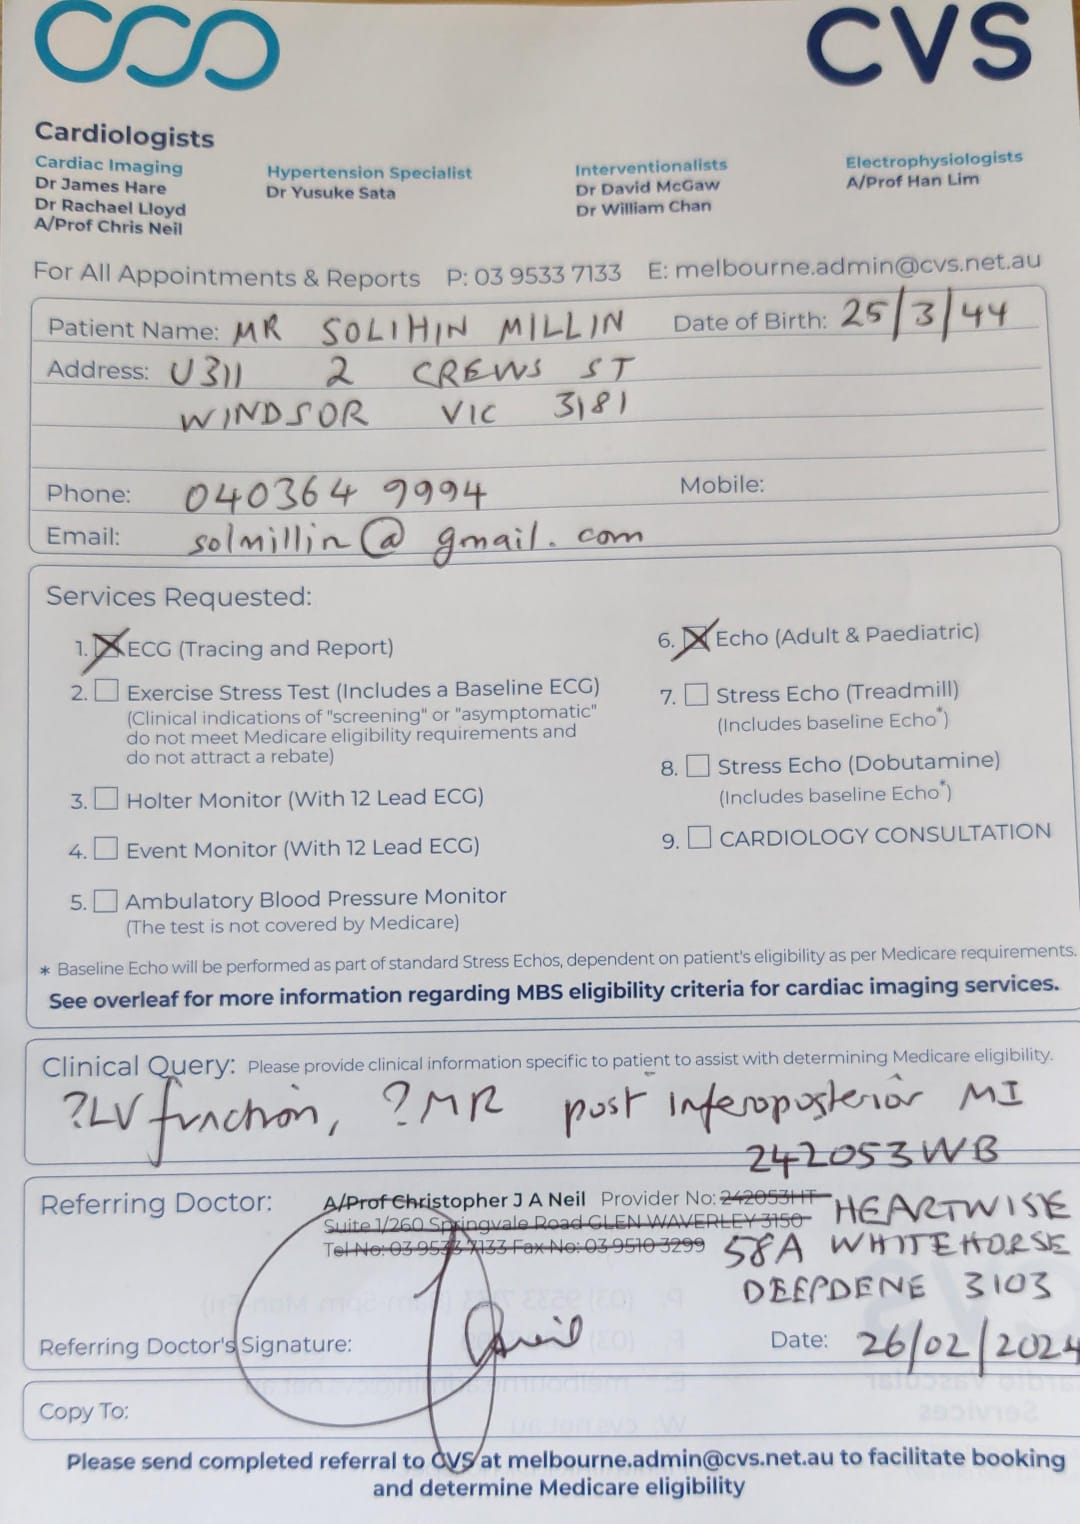 CVS
Cardiologists
Cardiac Imaging
Dr James Hare
Dr Rachael Lloyd
A/Prof Chris Neil
Hypertension Specialist
Dr Yusuke Sata
Interventionalists
Dr David McGaw
Dr William Chan
Electrophysiologists
A/Prof Han Lim
For All Appointments & Reports P: 03 9533 7133 E: melbourne.admin@cvs.net.au
Patient Name: MR SOLIHIN MILLIN Date of Birth: 25/3/44
Address: U311 2 CREWS ST
WINDSOR VIC 3181
Phone: 040364 9994 Mobile:
Email: solmillin@gmail.com
Services Requested:
1. ECG (Tracing and Report)
2. Exercise Stress Test (Includes a Baseline ECG)
(Clinical indications of "screening" or "asymptomatic"
do not meet Medicare eligibility requirements and
do not attract a rebate)
3. Holter Monitor (With 12 Lead ECG)
4. Event Monitor (With 12 Lead ECG)
5. Ambulatory Blood Pressure Monitor
(The test is not covered by Medicare)
6. Echo (Adult & Paediatric)
7. Stress Echo (Treadmill)
(Includes baseline Echo*)
8. Stress Echo (Dobutamine)
(Includes baseline Echo*)
9. CARDIOLOGY CONSULTATION
* Baseline Echo will be performed as part of standard Stress Echos, dependent on patient's eligibility as per Medicare requirements.
See overleaf for more information regarding MBS eligibility criteria for cardiac imaging services.
Clinical Query: Please provide clinical information specific to patient to assist with determining Medicare eligibility.
?LV function, ?MR post inferoposterior MI
242053WB
Referring Doctor: A/Prof Christopher J A Neil Provider No: 242053HT HEARTWISE
Suite 1/260 Springvale Road GLEN WAVERLEY 3150
Tel No: 03 9533 7133 Fax No: 03 9510 3299 58A WHITEHORSE
DEEPDENE 3103
Referring Doctor's Signature: Date: 26/02/2024
Copy To:
Please send completed referral to CVS at melbourne.admin@cvs.net.au to facilitate booking
and determine Medicare eligibility